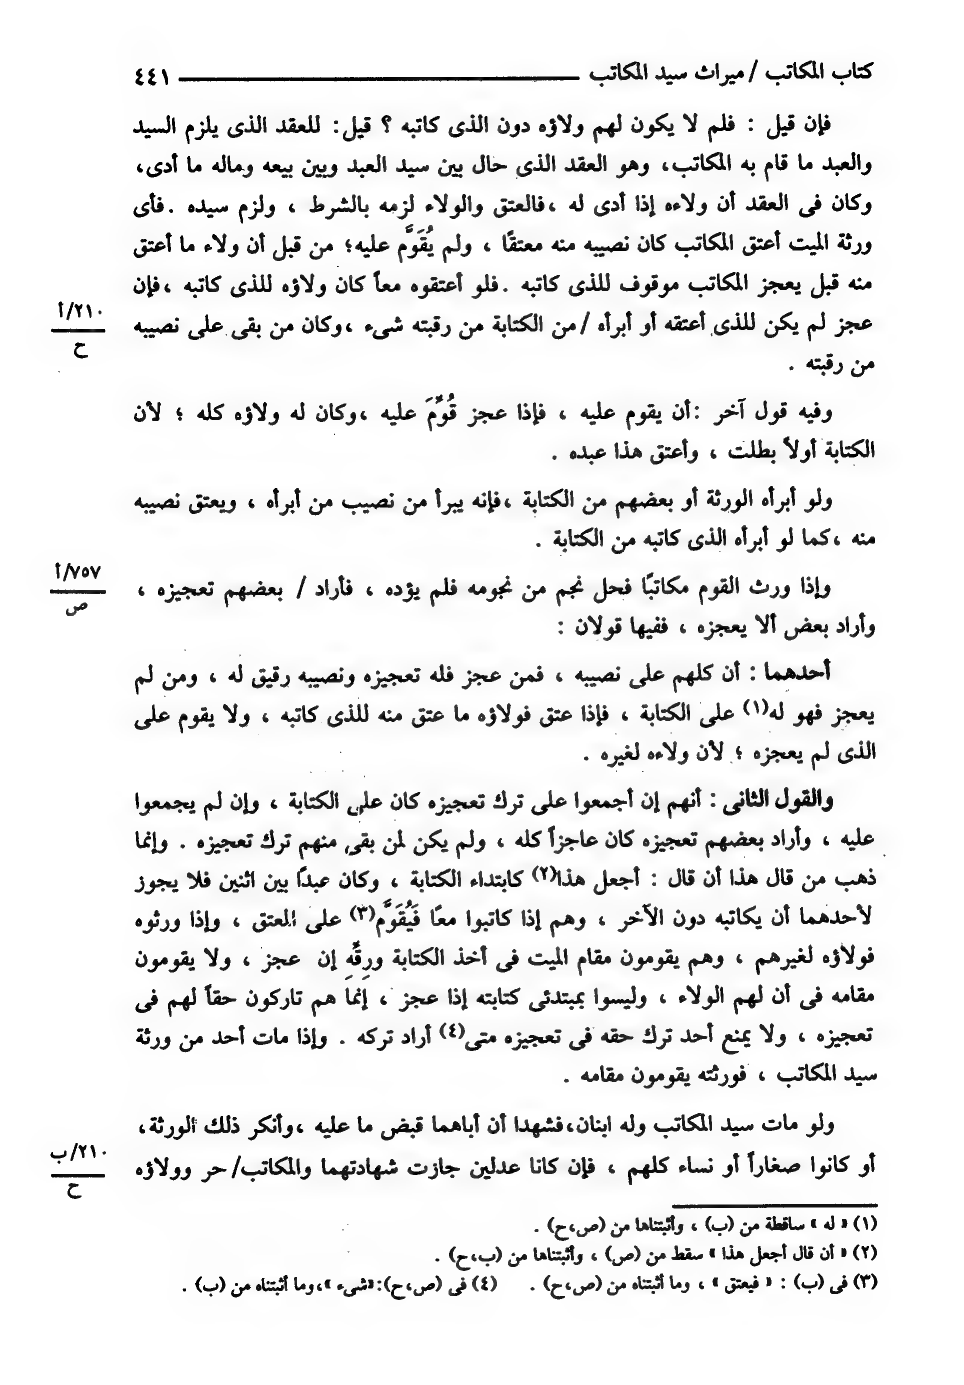 كتاب المكاتب / ميراث سيد المكاتب ٤٤١
فإن قيل : فلم لا يكون لهم ولاؤه دون الذى كاتبه ؟ قيل : للعقد الذى يلزم السيد
والعبد ما قام به المكاتب، وهو العقد الذى حال بين سيد العبد وبين بيعه وماله ما أدى،
وكان فى العقد أن ولاءه إذا أدى له ،فالعتق والولاء لزمه بالشرط ، ولزم سيده .فأى
ورثة الميت أعتق المكاتب كان نصيبه منه معتقًا ، ولم يُقَوَّم عليه؛ من قبل أن ولاء ما أعتق
منه قبل يعجز المكاتب موقوف للذى كاتبه .فلو أعتقوه معاً كان ولاؤه للذى كاتبه ،فإن
عجز لم يكن للذى أعتقه أو أبرأه /من الكتابة من رقبته شىء ،وكان من بقى على نصيبه
٢١٠/أ
ح
من رقبته .
وفيه قول آخر :أن يقوم عليه ، فإذا عجز قُوِّمَ عليه ،وكان له ولاؤه كله ؛ لأن
الكتابة أولاً بطلت ، وأعتق هذا عبده .
ولو أبرأه الورثة أو بعضهم من الكتابة ،فإنه يبرأ من نصيب من أبرأه ، ويعتق نصيبه
منه ،كما لو أبرأه الذى كاتبه من الكتابة .
وإذا ورث القوم مكاتبًا فحل نجم من نجومه فلم يؤده ، فأراد / بعضهم تعجيزه ،
٧٥٧/أ
ص
وأراد بعض ألا يعجزه ، ففيها قولان :
أحدهما : أن كلهم على نصيبه ، فمن عجز فله تعجيزه ونصيبه رقيق له ، ومن لم
يعجز فهو له(١) على الكتابة ، فإذا عتق فولاؤه ما عتق منه للذى كاتبه ، ولا يقوم على
الذى لم يعجزه ؛ لأن ولاءه لغيره .
والقول الثانى : أنهم إن أجمعوا على ترك تعجيزه كان على الكتابة ، وإن لم يجمعوا
عليه ، وأراد بعضهم تعجيزه كان عاجزاً كله ، ولم يكن لمن بقى منهم ترك تعجيزه . وإنما
ذهب من قال هذا أن قال : أجعل هذا(٢) كابتداء الكتابة ، وكان عبدًا بين اثنين فلا يجوز
لأحدهما أن يكاتبه دون الآخر ، وهم إذا كاتبوا معًا فَيُقَوَّم(٣) على المعتق ، وإذا ورثوه
فولاؤه لغيرهم ، وهم يقومون مقام الميت فى أخذ الكتابة ورِقِّهِ إن عجز ، ولا يقومون
مقامه فى أن لهم الولاء ، وليسوا بمبتدئى كتابته إذا عجز ، إنما هم تاركون حقاً لهم فى
تعجيزه ، ولا يمنع أحد ترك حقه فى تعجيزه متى(٤) أراد تركه . وإذا مات أحد من ورثة
سيد المكاتب ، فورثته يقومون مقامه .
ولو مات سيد المكاتب وله ابنان،فشهدا أن أباهما قبض ما عليه ،وأنكر ذلك الورثة،
أو كانوا صغاراً أو نساء كلهم ، فإن كانا عدلين جازت شهادتهما والمكاتب/ حر وولاؤه
٢١٠/ب
ح
(١) « له » ساقطة من (ب) ، وأثبتناها من (ص،ح) .
(٢) « أن قال أجعل هذا » سقط من (ص) ، وأثبتناها من (ب،ح) .
(٣) فى (ب) : « فيعتق » ، وما أثبتناه من (ص،ح) . (٤) فى (ص،ح):«شىء »،وما أثبتناه من (ب) .